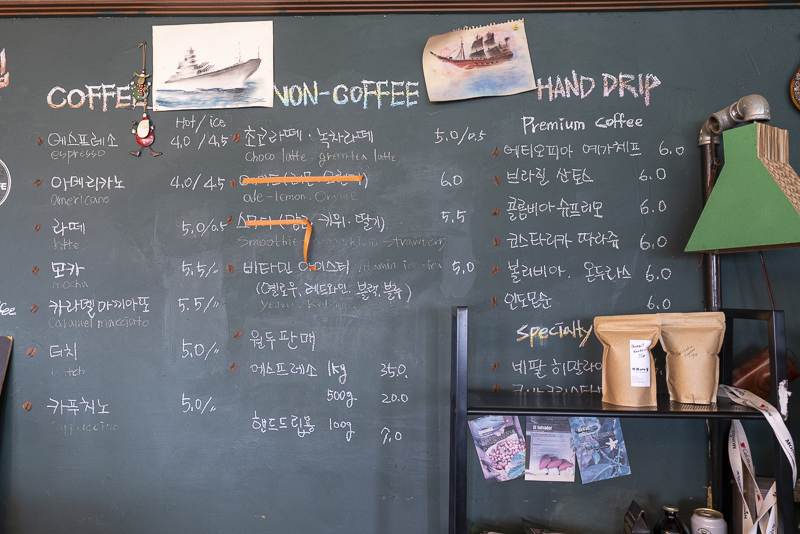 COFFEE
Hot / ice
에스프레소 4.0 / 4.5
espresso
아메리카노 4.0 / 4.5
americano
라떼 5.0 /
latte
모카 5.5 /
mocha
카라멜마끼아또 5.5 /
Caramel macciato
더치 5.0 /
카푸치노 5.0 /
cappuccino
NON-COFFEE
초코라떼 · 녹차라떼 5.0 /
Choco latte greentea latte
6.0
ade-lemon. Orange
키위. 딸기) 5.5
Smoothie Strawberry
비타민 아이스티 vitamin ice-tea 5.0
(옐로우, 레드와인, 블랙, 블루)
원두판매
에스프레소 1kg 35.0
500g 20.0
핸드드립용 100g 7.0
HAND DRIP
Premium Coffee
에티오피아 예가체프 6.0
브라질 산토스 6.0
콜롬비아 슈프리모 6.0
코스타리카 따라쥬 6.0
볼리비아. 온두라스 6.0
인도몬순 6.0
Specialty
네팔 히말라야